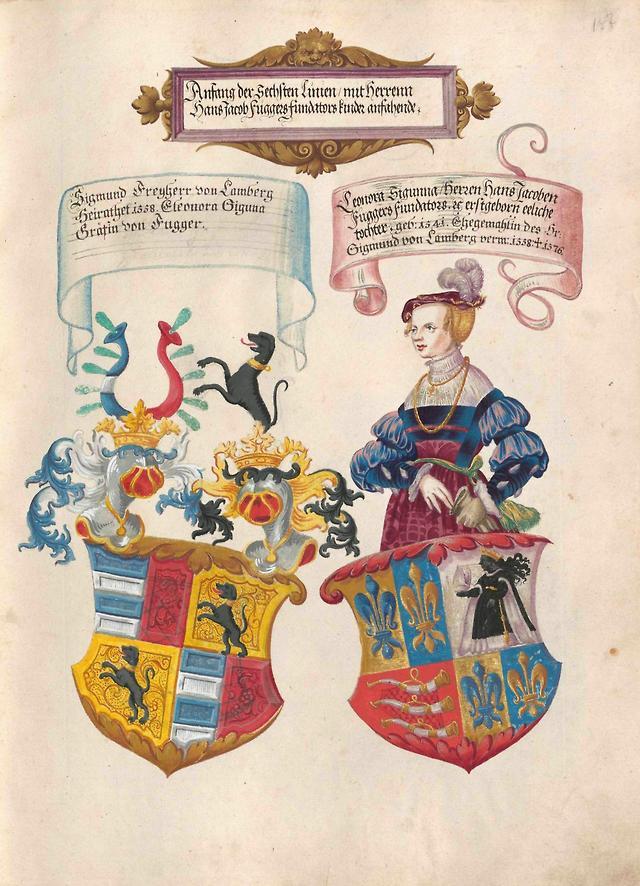 Anfang der Sechsten Linien / mit Herrenn
Hans Jacob Fuggers fundators kinder anfahende.
Sigmund Freyherr von Lamberg
Heirathet 1558. Eleonora Siguna
Gräfin von Fugger.
Leonora Sigunna / Herren Hans Jacoben
Fuggers fundators. ꝛc erstgeborn eeliche
tochter. geb: 1541. Ehegemahlin des Hr:
Sigmund von Lamberg verm: 1558 † 1576.